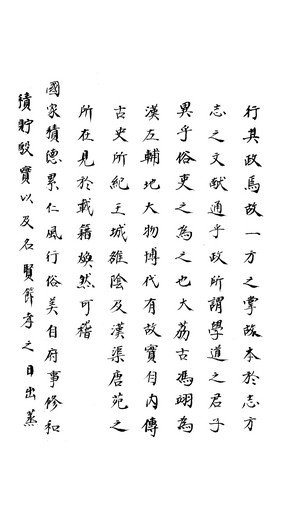 行其政焉故一方之掌故本於志方
志之文獻通乎政所謂學道之君子
異乎俗吏之為之也大荔古馮翊為
漢左輔地大物博代有故實自內傳
古史所紀王城雒陰及漢渠唐苑之
所在見於載籍煥然可稽
國家積德累仁風行俗美自府事修和
積貯殷實以及名賢節孝之日出蒸